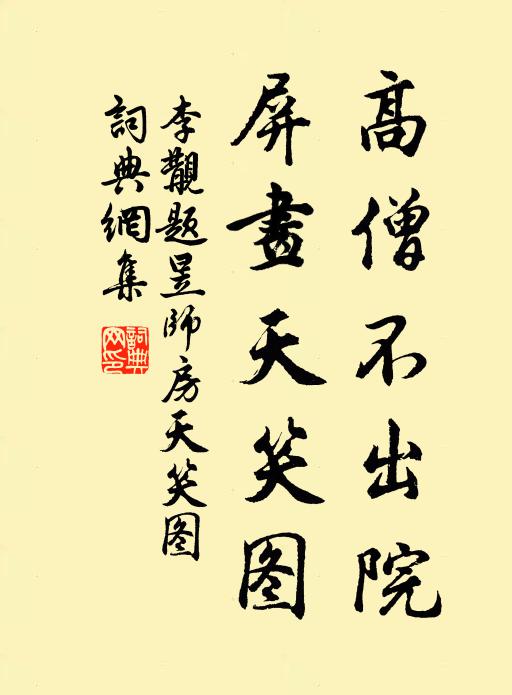 高僧不出院
屏畫天笑图
李覯题昱師房天笑图
詞典網集
詞典網印